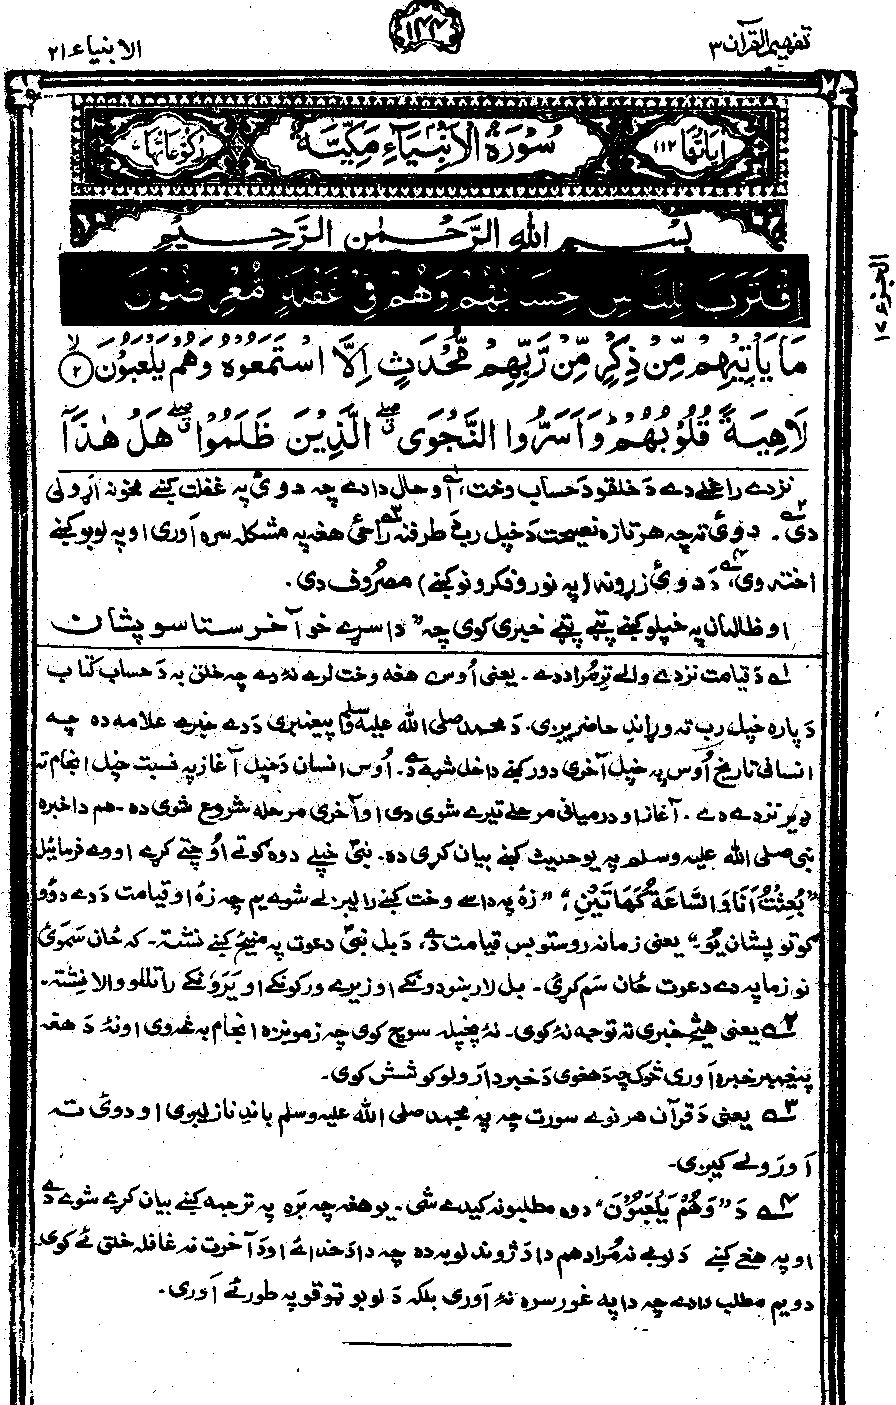 تفهيم القرآن ٣
١٤٤
الانبياء ٢١
اٰيَاتُهَا ١١٢
سُوْرَةُ الْاَنْبِيَآءِ مَكِّيَّةٌ
رُكُوْعَاتُهَا
بِسْمِ اللهِ الرَّحْمٰنِ الرَّحِيْمِ
الجزء ١٧
اِقْتَرَبَ لِلنَّاسِ حِسَابُهُمْ وَهُمْ فِيْ غَفْلَةٍ مُّعْرِضُوْنَ
مَا يَأْتِيْهِمْ مِّنْ ذِكْرٍ مِّنْ رَّبِّهِمْ مُّحْدَثٍ اِلَّا اسْتَمَعُوْهُ وَهُمْ يَلْعَبُوْنَ ٢ لا
لَاهِيَةً قُلُوْبُهُمْ ؕ وَاَسَرُّوا النَّجْوَى الَّذِيْنَ ظَلَمُوْا هَلْ هٰذَآ
نزدے راغلے دے دَ خلقو دَ حساب وخت ١، او حال دادے چه دوئ په غفلت کښے مخونه اړولی
دی ٢. دوئ ته چه هر تازه نصیحت دَ خپل رب دَ طرفنه راځی ٣ هغه په مشکله سره آوری او په لوبو کښے
اخته وی ٤، دَ دوئ زړونه (په نورو فکرونو کښے) مصروف دی.
او ظالمان په خپلو کښے پټے پټے خبری کوی چه "داسړے خو آخر ستاسو پشان
١ے دَ قیامت نزدے والے ترِ مُراد دے. یعنی اُوس هغه وخت لرے نۀ دے چه خلق به دَ حساب کتاب
دَپاره خپل رب ته وړاندِ حاضریږی. دَ محمد صلی الله علیه وسلم پیغبری دَدے خبرے علامه ده چه
انسانی تاریخ اُوس په خپل آخری دور کښے داخل شوے دے. اُوس انسان دَ خپل آغاز په نسبت خپل انجام ته
ډیر نزدے دے. آغاز او درمیانی مرحلے تیرے شوی دی او آخری مرحله شروع شوی ده. هم دا خبره
نبی صلی الله علیه وسلم په یو حدیث کښے بیان کری ده. نبیؐ خپلے دوه ګوتے اوُچتے کړے او وے فرمائیل
"بُعِثْتُ اَنَا وَالسَّاعَةُ كَهَاتَيْنِ"، "زۀ په داسے وخت کښے رالیږلے شوے یم چه زۀ او قیامت دَ دے دوؤ
ګوتو پشان یُو" یعنی زما نه روستو بس قیامت دے، دَ بل نبیؐ دعوت په منځ کښے نشته. که ځان سموئ
نو زما په دے دعوت ځان سم کړئ. بل لارښودونکے او زیرے ورکونکے او یَرَوُنکے راتللو والا نِشته.
٢ے یعنی هیڅ خبری ته توجه نۀ کوی. نۀ پخپله سوچ کوی چه زمونږه انجام به څه وی او نۀ دَ هغه
پیغمبر خبره آوری څوک چه دَ هغوی دَ خبردارَ ولو کوشش کوی.
٣ے یعنی دَ قرآن هر نوے سورت چه په محمد صلی الله علیه وسلم باندِ نازلیږی او دوئ ته
آورولے کیږی.
٤ے دَ "وَهُمْ يَلْعَبُوْنَ" دوه مطلبونه کیدے شی. یو هغه چه بره په ترجمه کښے بیان کړے شوے دے
او په هغے کښے دَ لوبے نه مُراد هم دا دَ ژوند لوبه ده چه دا دَ خدائے او دَ آخرت نه غافله خلق ئے کوی.
دویم مطلب دادے چه دا په غور سره نۀ آوری بلکه دَ لوبو ټوقو په طور ئے آوری.